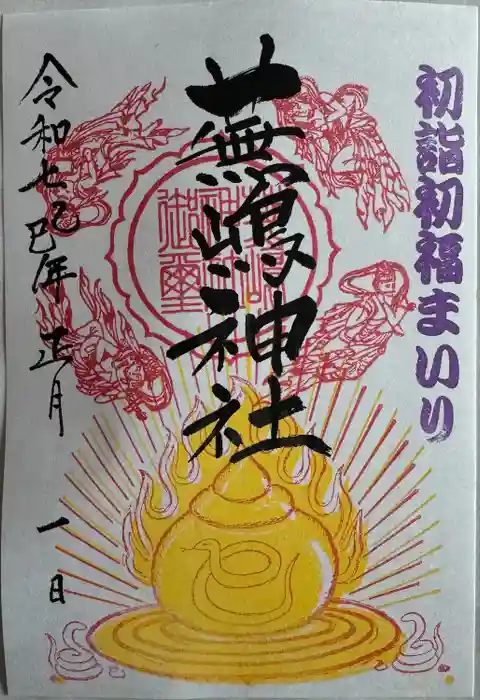 初詣初福まいり
蕪嶋神社
令和七乙巳年 正月 一日